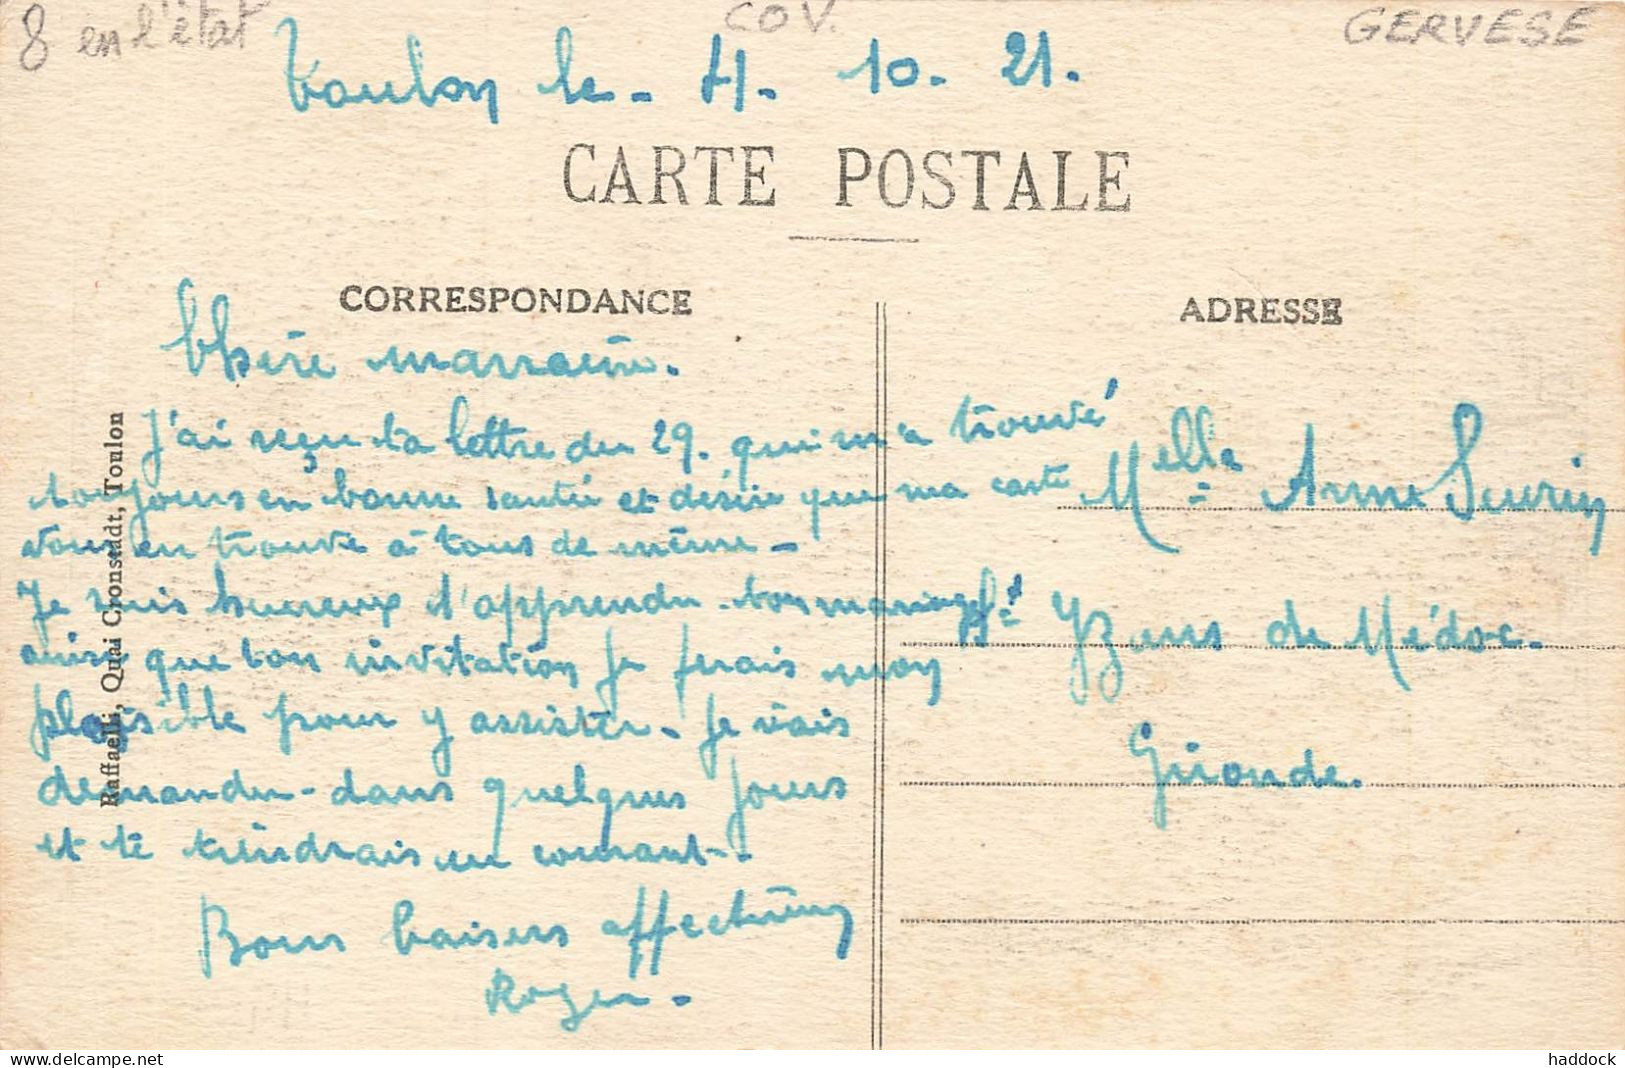 8 en l'état
COV.
GERVESE
Toulon le - 4. 10. 21.
CARTE POSTALE
CORRESPONDANCE
ADRESSE
Chère marraine.
J'ai reçu ta lettre du 29. qui m'a trouvé
toujours en bonne santé et désire que ma carte
vous en trouve à tous de même -
Je suis heureux d'apprendre ton mariage
ainsi que ton invitation je ferais mon
plossible pour y assister - Je vais
demander - dans quelques jours
et te tiendrais au courant -
Bons baisers affectueux
Roger -
Melle Anne Seurin
St Yzans de Médoc.
Gironde.
Raffaelli, Quai Cronstadt, Toulon
delcampe.net
haddock